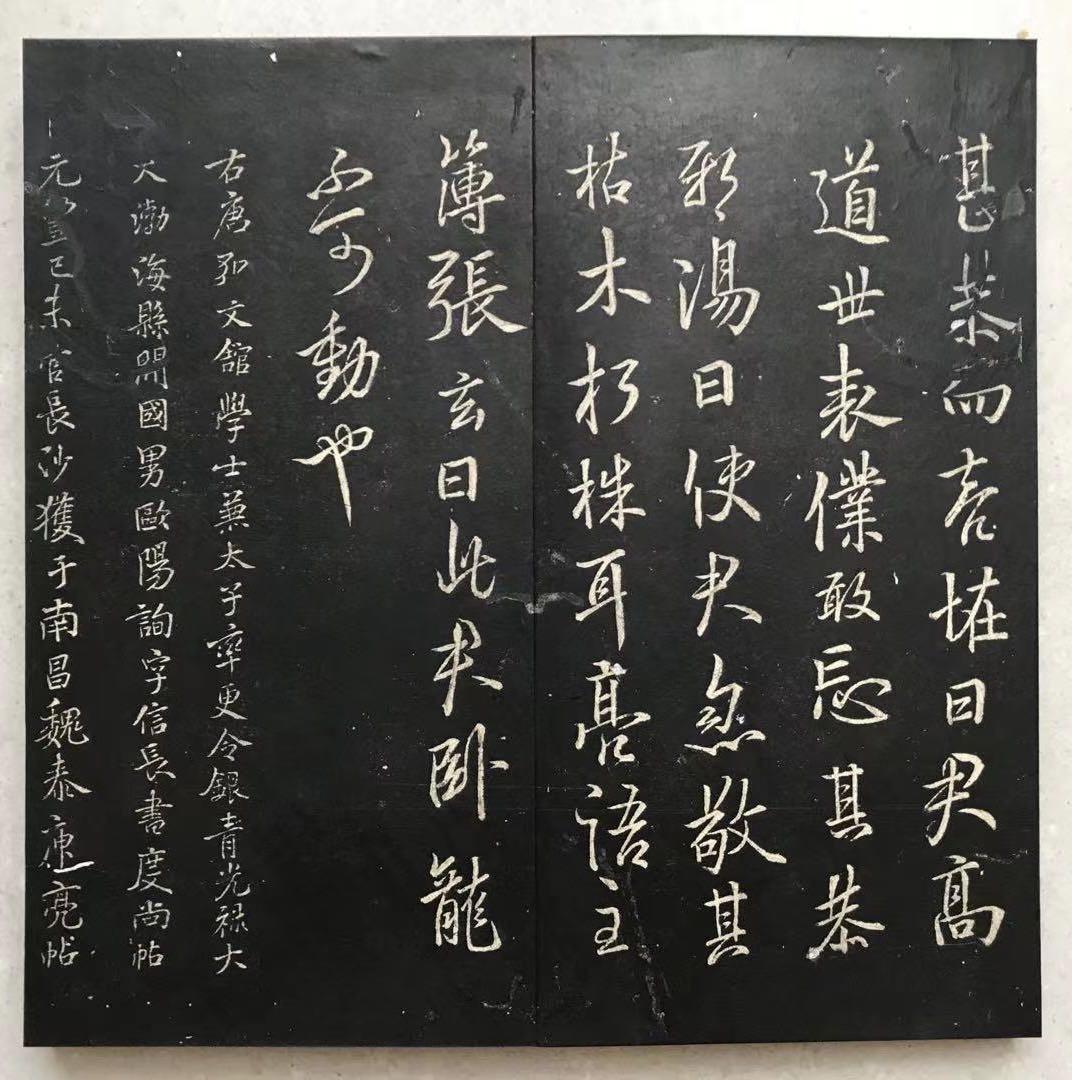 甚恭而亮恠曰君高
道世表僕敢忘其恭
邪湯曰使君忽敬其
枯木朽株耳亮語主
簿張玄曰此君卧龍
不可動也
右唐弘文館學士兼太子率更令銀青光禄大
夫渤海縣開國男歐陽詢字信長書度尚帖
元豐己未官長沙獲于南昌魏泰庾亮帖